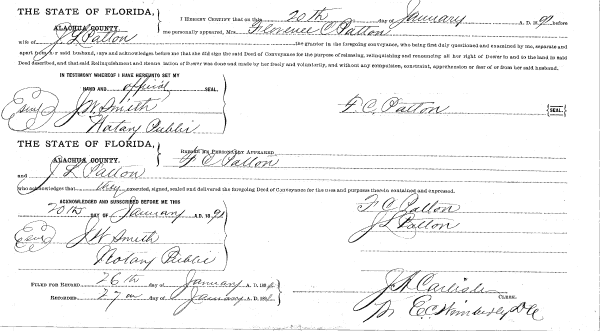 THE STATE OF FLORIDA,
ALACHUA COUNTY.
I HEREBY CERTIFY that on this 20th day of January A. D. 1892 before
me personally appeared, Mrs. Florence C. Patton
wife of J L Patton the grantor in the foregoing conveyance, who being first duly questioned and examined by me, separate and
apart from her said husband, says and acknowledges before me that she did sign the said Deed of Conveyance for the purpose of releasing, relinquishing and renouncing all her right of Dower in and to the land in said
Deed described, and that said Relinquishment and Renunciation of Dower was done and made by her freely and voluntarily, and without any compulsion, constraint, apprehension or fear of or from her said husband.
IN TESTIMONY WHEREOF I HAVE HERETO SET MY
HAND AND official SEAL.
J. W. Smith
Notary Public
F. C. Patton SEAL.
THE STATE OF FLORIDA,
ALACHUA COUNTY.
HEREBY PERSONALLY APPEARED
F C Patton
and J L Patton
who acknowledges that they executed, signed, sealed and delivered the foregoing Deed of Conveyance for the uses and purposes therein contained and expressed.
ACKNOWLEDGED AND SUBSCRIBED BEFORE ME THIS
20th DAY OF January A. D. 1892
J W Smith
Notary Public
F C Patton
J L Patton
FILED FOR RECORD 26th day of January A. D. 189
RECORDED 27 day of January A. D. 189
J A Carlisle
CLERK.
E C Wimberly D C